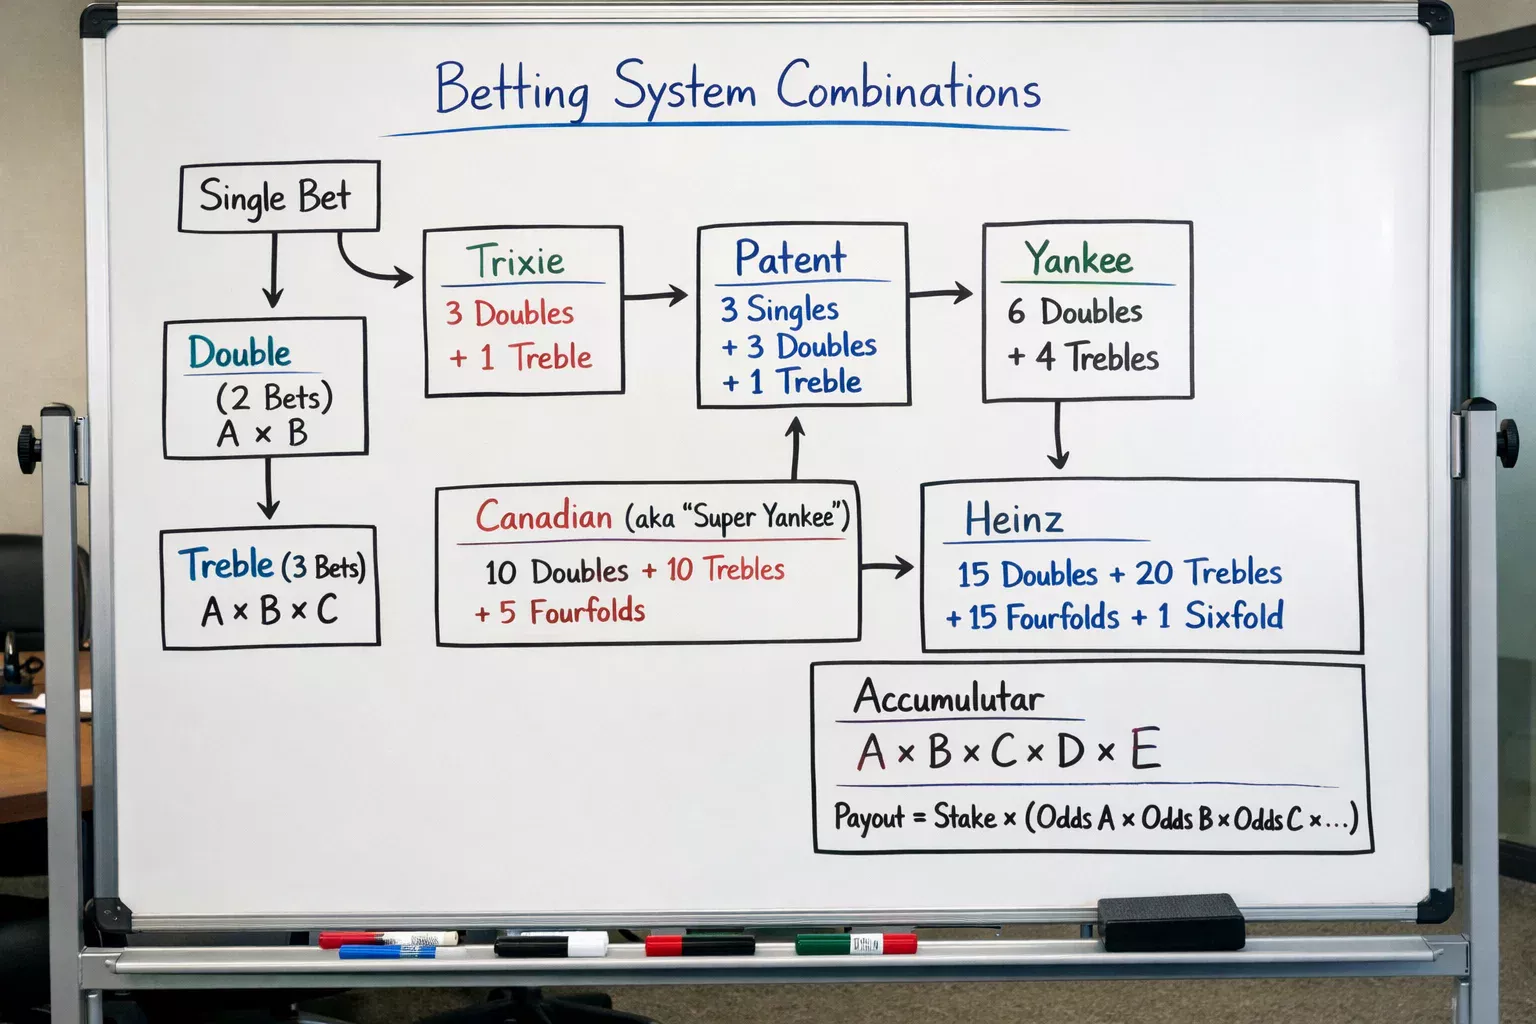 Betting System Combinations
Single Bet
Double
(2 Bets)
A × B
Treble (3 Bets)
A × B × C
Trixie
3 Doubles
+ 1 Treble
Patent
3 Singles
+ 3 Doubles
+ 1 Treble
Yankee
6 Doubles
+ 4 Trebles
Canadian (aka "Super Yankee")
10 Doubles + 10 Trebles
+ 5 Fourfolds
Heinz
15 Doubles + 20 Trebles
+ 15 Fourfolds + 1 Sixfold
Accumulutar
A × B × C × D × E
Payout = Stake × (Odds A × Odds B × Odds C × ...)